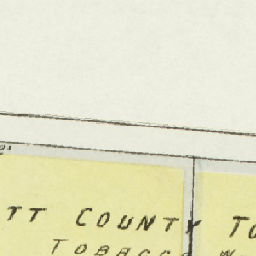 TT COUNTY TO
TOBACCO W